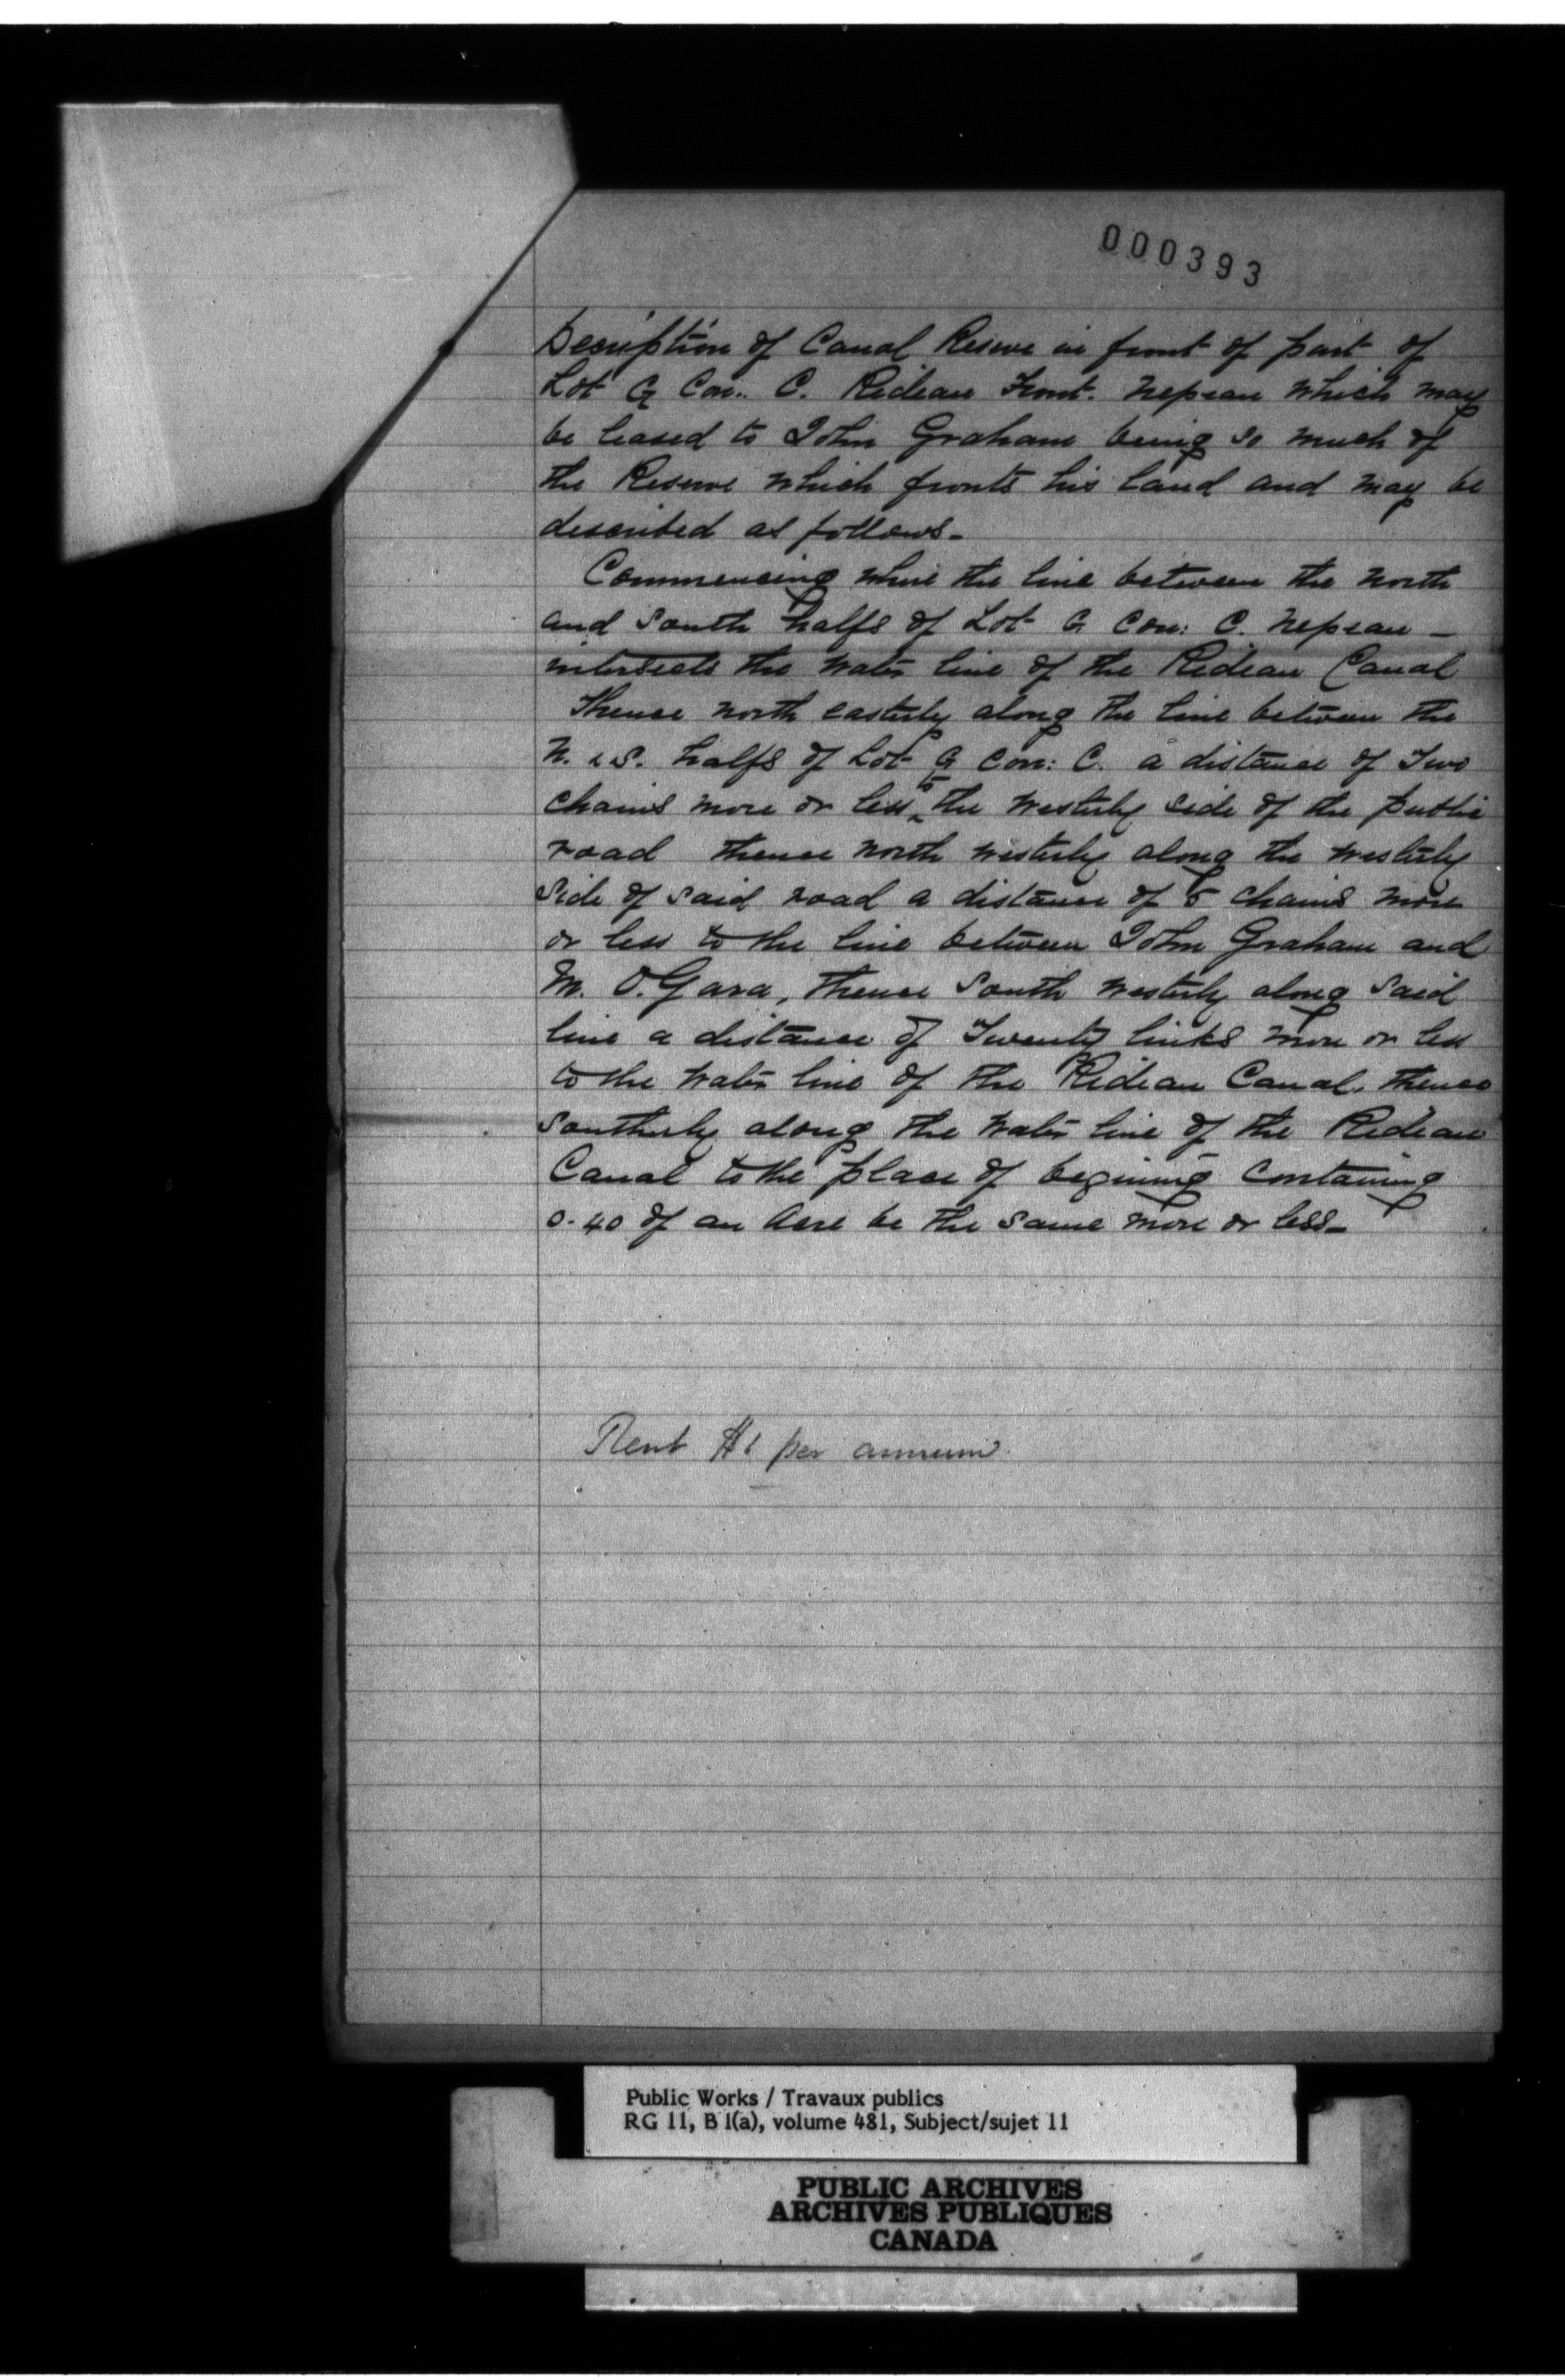 000393
Description of Canal Reserve in front of part of
Lot G Con: C. Rideau Front. Nepean which may
be leased to John Graham being so much of
the Reserve which fronts his land and may be
described as follows-
Commencing where the line between the north
and South halfs of Lot G Con: C. Nepean -
intersects the water line of the Rideau Canal
Thence north easterly along the line between the
N. & S. halfs of Lot G Con: C. a distance of Two
chains more or less to the westerly side of the public
road thence north westerly along the westerly
side of said road a distance of 5 chains more
or less to the line between John Graham and
M. O.Gara, thence South westerly along said
line a distance of Twenty links more or less
to the water line of the Rideau Canal, thence
Southerly along the water line of the Rideau
Canal to the place of begining containing
0.40 of an Acre be the same more or less-
Rent $1 per annum
Public Works / Travaux publics
RG 11, B 1(a), volume 481, Subject/sujet 11
PUBLIC ARCHIVES
ARCHIVES PUBLIQUES
CANADA